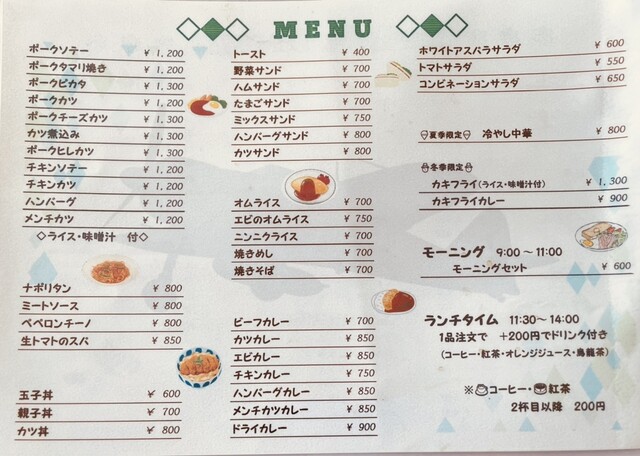 MENU
ポークソテー ¥ 1,200
ポークタマリ焼き ¥ 1,200
ポークピカタ ¥ 1,300
ポークカツ ¥ 1,200
ポークチーズカツ ¥ 1,300
カツ煮込み ¥ 1,300
ポークヒレカツ ¥ 1,300
チキンソテー ¥ 1,200
チキンカツ ¥ 1,200
ハンバーグ ¥ 1,200
メンチカツ ¥ 1,200
◇ライス・味噌汁 付◇
ナポリタン ¥ 800
ミートソース ¥ 800
ペペロンチーノ ¥ 800
生トマトのスパ ¥ 850
玉子丼 ¥ 600
親子丼 ¥ 700
カツ丼 ¥ 800
トースト ¥ 400
野菜サンド ¥ 700
ハムサンド ¥ 700
たまごサンド ¥ 700
ミックスサンド ¥ 750
ハンバーグサンド ¥ 800
カツサンド ¥ 800
オムライス ¥ 700
エビのオムライス ¥ 750
ニンニクライス ¥ 700
焼きめし ¥ 700
焼きそば ¥ 700
ビーフカレー ¥ 700
カツカレー ¥ 850
エビカレー ¥ 850
チキンカレー ¥ 750
ハンバーグカレー ¥ 850
メンチカツカレー ¥ 850
ドライカレー ¥ 900
ホワイトアスパラサラダ ¥ 600
トマトサラダ ¥ 550
コンビネーションサラダ ¥ 650
夏季限定 冷やし中華 ¥ 800
冬季限定
カキフライ(ライス・味噌汁付) ¥ 1,300
カキフライカレー ¥ 900
モーニング 9:00～11:00
モーニングセット ¥ 600
ランチタイム 11:30～14:00
1品注文で +200円でドリンク付き
(コーヒー・紅茶・オレンジジュース・烏龍茶)
※コーヒー・紅茶
2杯目以降 200円